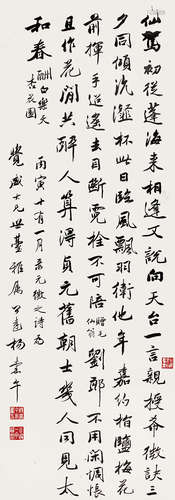 仙駕初從蓬海來相逢又說向天台一言親授希微訣三
夕同傾沆瀣杯此日臨風飄羽衛他年嘉約指鹽梅花
前揮手迢遙去目斷霓旌不可陪 贈毛仙翁 劉郎不用閒惆悵
且作花間共醉人算得貞元舊朝士幾人同見太
和春 酬白樂天杏花園 丙寅十有一月錄元微之詩為
雅屬 楊